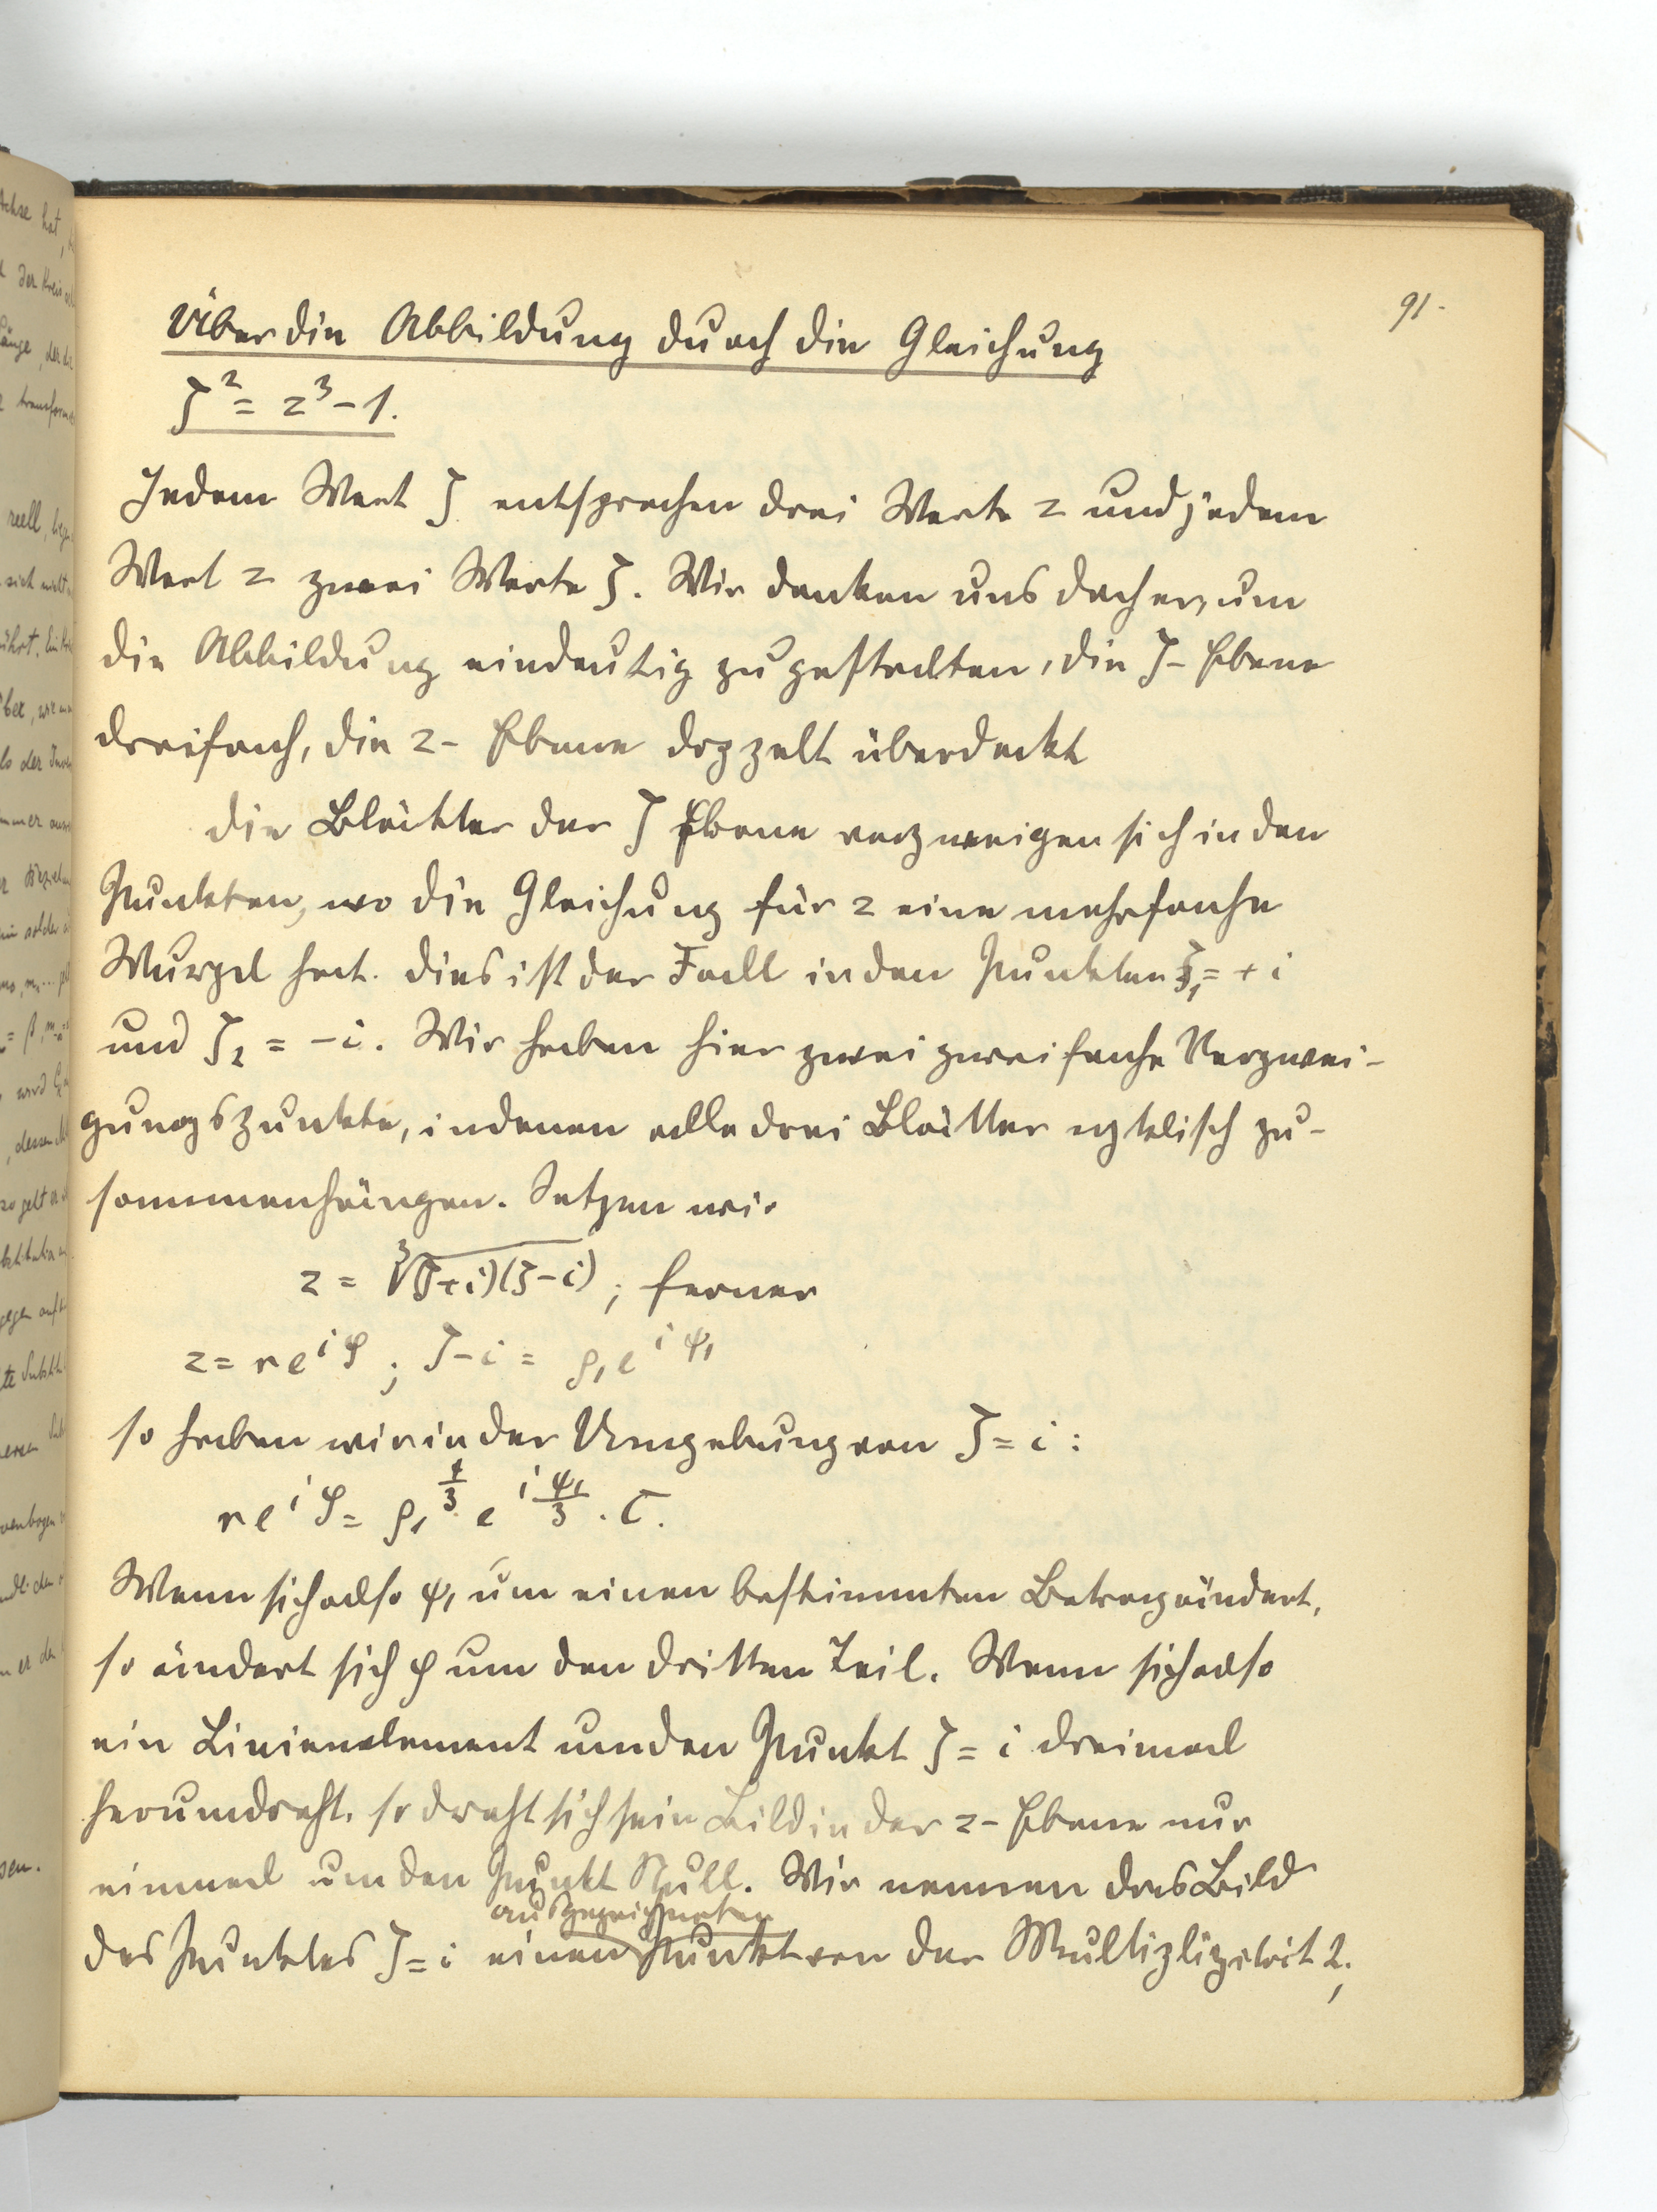 91.
Über die Abbildung durch die Gleichung
ζ² = z³ - 1.
Jedem Wert ζ entsprechen drei Werte z und jedem
Wert z zwei Werte ζ. Wir denken uns daher, um
die Abbildung eindeutig zu gestalten, die ζ- Ebene
dreifach, die z- Ebene doppelt überdeckt
Die Blätter der ζ Ebene verzweigen sich in den
Punkten, wo die Gleichung für z eine mehrfache
Wurzel hat. Dies ist der Fall in den Punkten ζ₁ = + i
und ζ₂ = - i. Wir haben hier zwei zweifache Verzwei-
gungspunkte, in denen alle drei Blätter zyklisch zu-
sammenhängen. Setzen wir
z = ∛(ζ+i)(ζ-i) ; ferner
z = r e^{iφ} ; ζ - i = ρ₁ e^{iψ₁}
so haben wir in der Umgebung von ζ = i :
r e^{iφ} = ρ₁^{1/3} e^{iψ₁/3} . C.
Wenn sich also ψ₁ um einen bestimmten Betrag ändert,
so ändert sich φ um den dritten Teil. Wenn sich also
ein Linienelement um den Punkt ζ = i dreimal
herumdreht, so dreht sich sein Bild in der z- Ebene nur
einmal um den Punkt Null. Wir nennen das Bild
ausgezeichneten
des Punktes ζ = i einen Punkt von der Multiplizität 2;